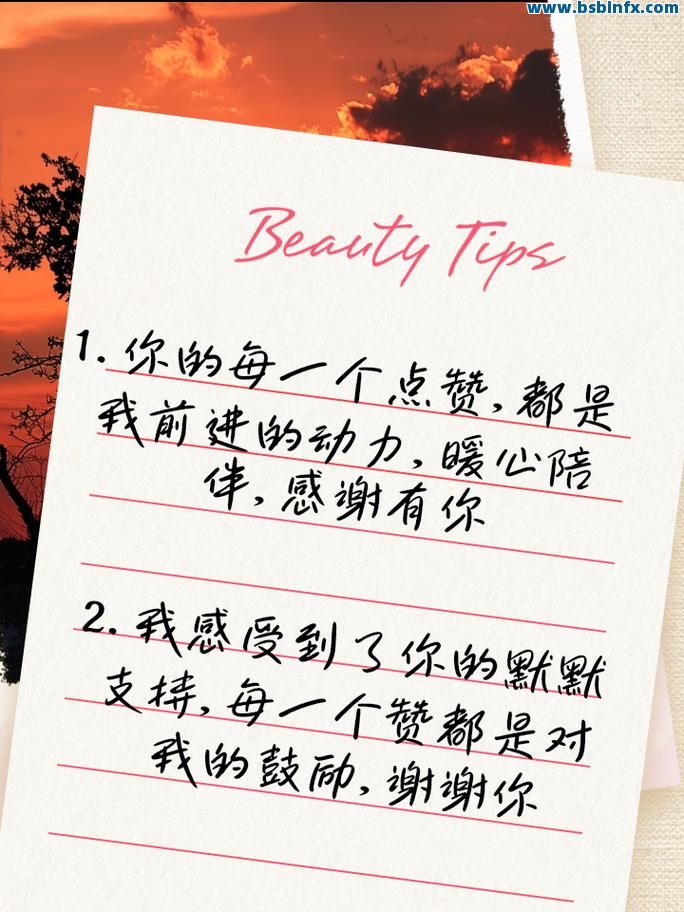 www.bsblnfx.com
Beauty Tips
1. 你的每一个点赞,都是
我前进的动力,暖心陪
伴,感谢有你
2. 我感受到了你的默默
支持,每一个赞都是对
我的鼓励,谢谢你